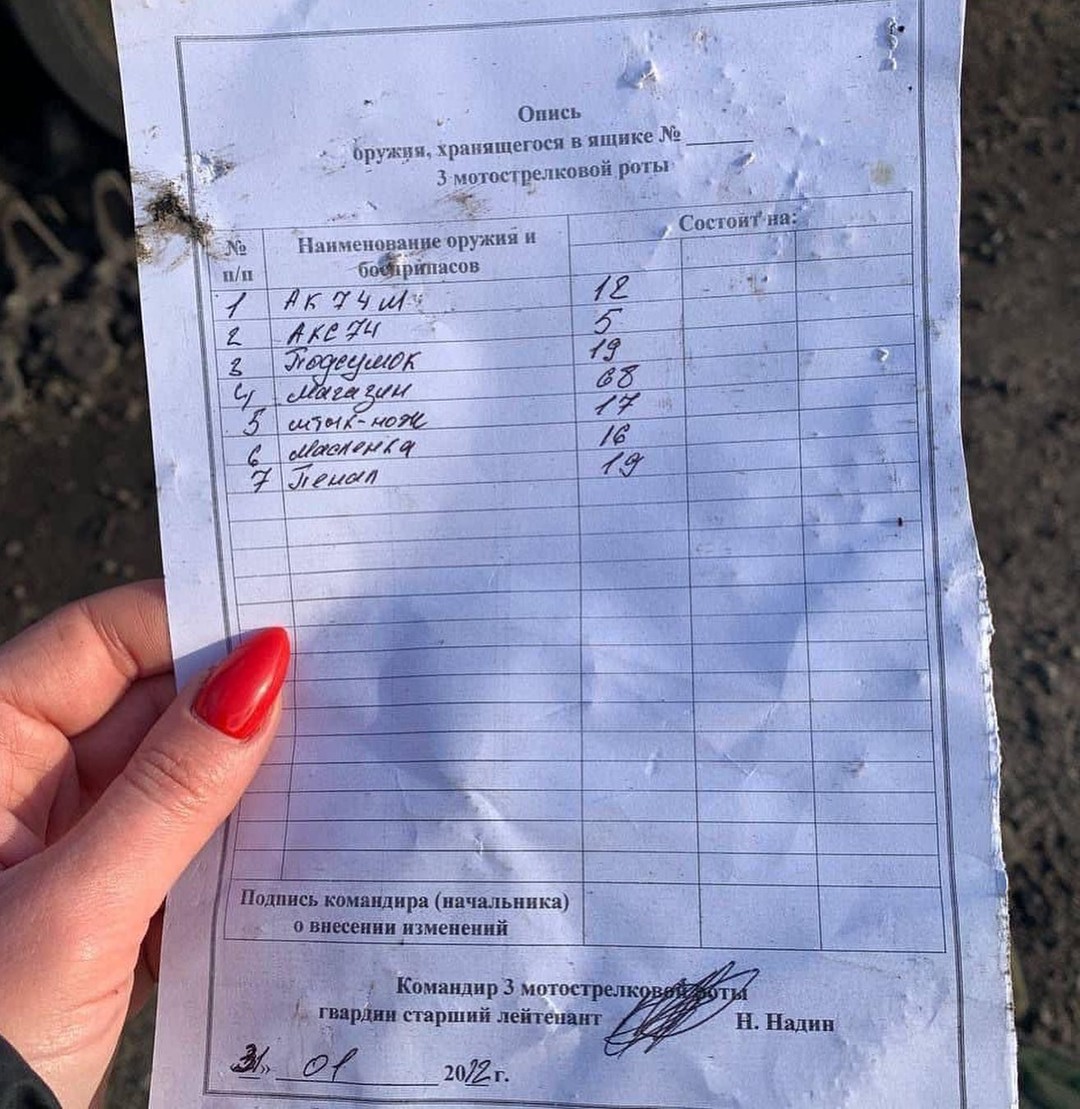 Опись
оружия, хранящегося в ящике № ______
3 мотострелковой роты
№ п/п Наименование оружия и боеприпасов Состоит на:
1 АК 74 М 12
2 АКС 74 5
3 Подсумок 19
4 Магазин 68
5 штык-нож 17
6 Масленка 16
7 Пенал 19
Подпись командира (начальника)
о внесении изменений
Командир 3 мотострелковой роты
гвардии старший лейтенант Н. Надин
31» 01 2022 г.